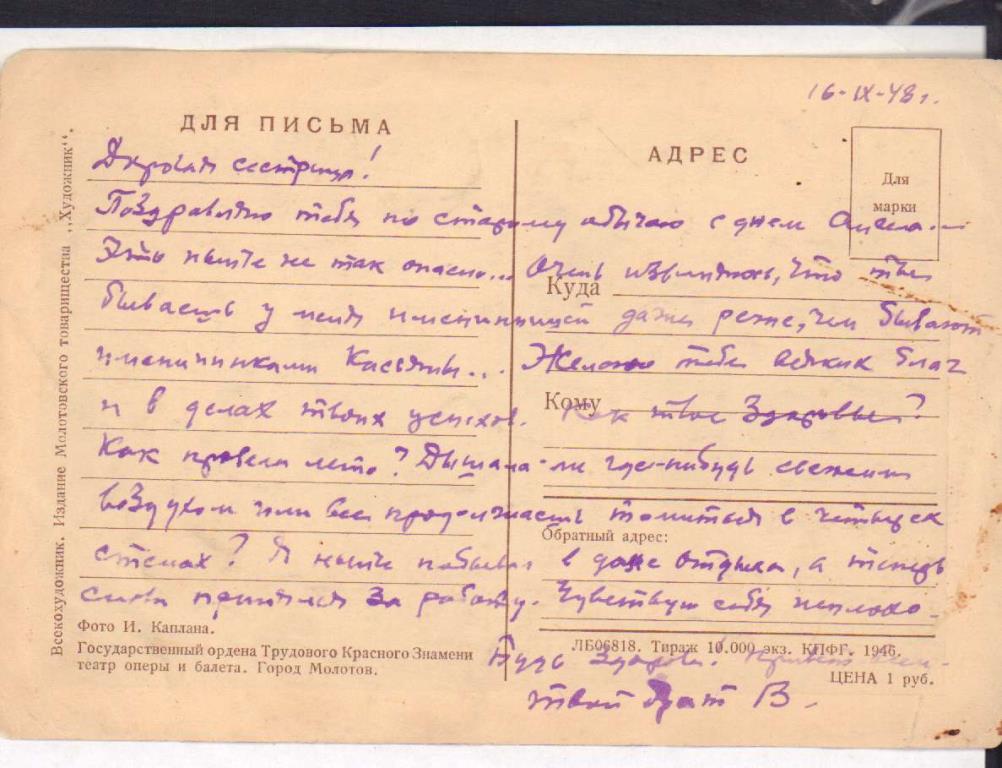 16-IX-48 г.
ДЛЯ ПИСЬМА
АДРЕС
Для
марки
Дорогая сестрица!
Поздравляю тебя по старому обычаю с днем Ангела...
Это нынче не так опасно... Очень извиняюсь, что ты
Куда
бываешь у меня именинницей даже реже, чем бывают
именинниками Касьяны... Желаю тебе всяких благ
и в делах твоих успехов. Как твое здоровье?
Кому
Как провела лето? Дышала-ли где-нибудь свежим
воздухом или все продолжаешь томиться в четырех
Обратный адрес:
стенах? Я нынче побывал в доме отдыха, а теперь
снова принялся за работу. Чувствую себя неплохо.
Будь здорова. Привет всем.
твой брат В.
Фото И. Каплана.
Государственный ордена Трудового Красного Знамени
театр оперы и балета. Город Молотов.
ЛБ06818. Тираж 10.000 экз. КПФГ. 1946.
ЦЕНА 1 руб.
Всекохудожник. Издание Молотовского товарищества „Художник“.